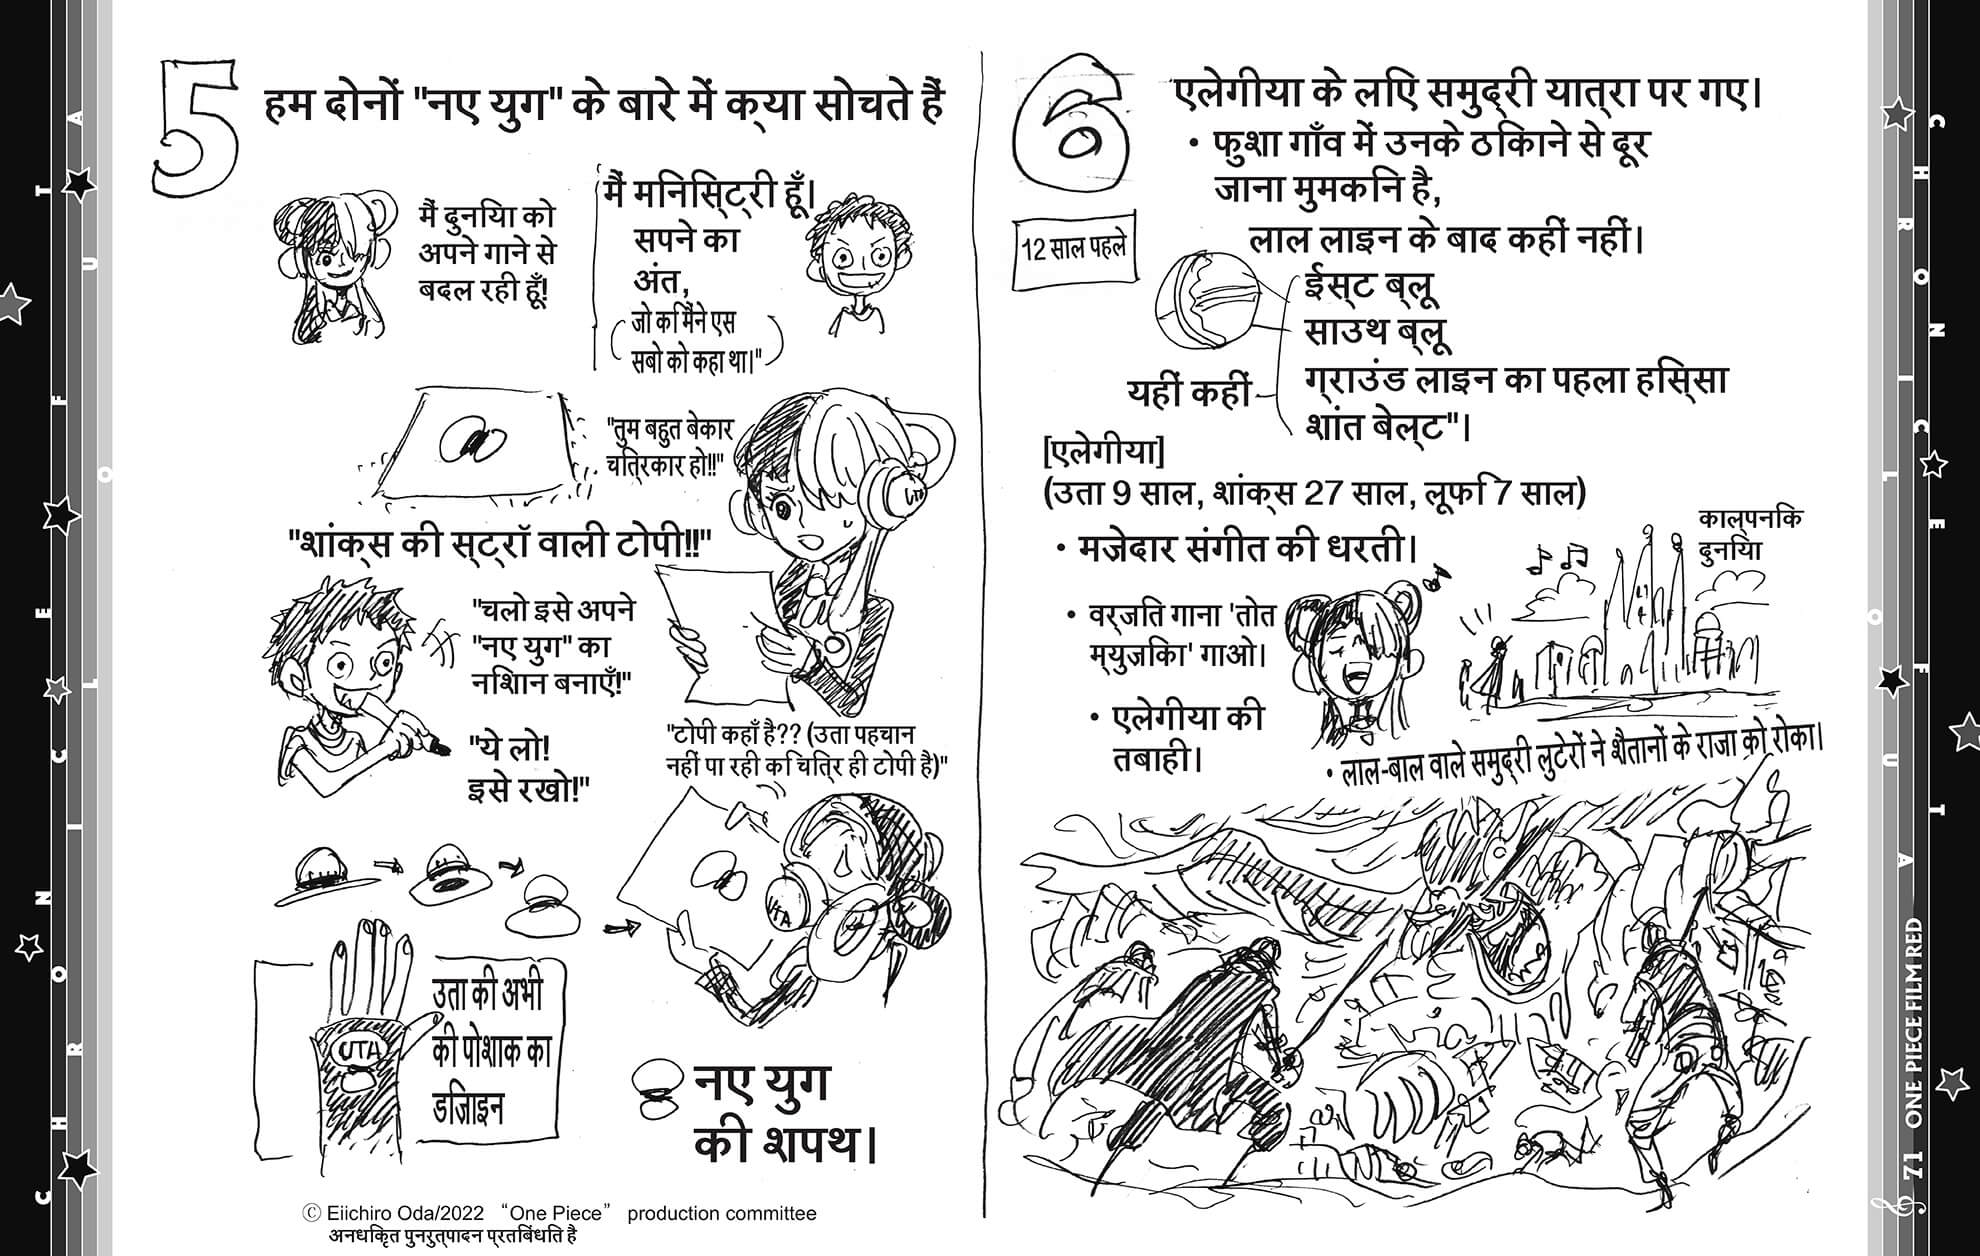 CHRONICLE OF UTA
5
हम दोनों "नए युग" के बारे में क्या सोचते हैं
मैं दुनिया को
अपने गाने से
बदल रही हूँ!
मैं मनिस्ट्री हूँ।
सपने का
अंत,
जो कि मैंने एस
सबो को कहा था।"
"तुम बहुत बेकार
चित्रकार हो!!"
UTA
"शांक्स की स्ट्रॉ वाली टोपी!!"
"चलो इसे अपने
"नए युग" का
निशान बनाएँ!"
"ये लो!
इसे रखो!"
"टोपी कहाँ है?? (उता पहचान
नहीं पा रही कि चित्र ही टोपी है)"
UTA
UTA
उता की अभी
की पोशाक का
डिज़ाइन
नए युग
की शपथ।
Ⓒ Eiichiro Oda/2022 “One Piece” production committee
अनधिकृत पुनरुत्पादन प्रतिबंधित है
6
एलेगीया के लिए समुद्री यात्रा पर गए।
• फुशा गाँव में उनके ठिकाने से दूर
जाना मुमकिन है,
लाल लाइन के बाद कहीं नहीं।
12 साल पहले
ईस्ट ब्लू
साउथ ब्लू
ग्राउंड लाइन का पहला हिस्सा
शांत बेल्ट"।
यहीं कहीं
[एलेगीया]
(उता 9 साल, शांक्स 27 साल, लूफि 7 साल)
• मजेदार संगीत की धरती।
काल्पनिक
दुनिया
• वर्जित गाना 'तोत
म्युजिका' गाओ।
• एलेगीया की
तबाही।
• लाल-बाल वाले समुद्री लुटेरों ने शैतानों के राजा को रोका।
CHRONICLE OF UTA
71 ONE PIECE FILM RED